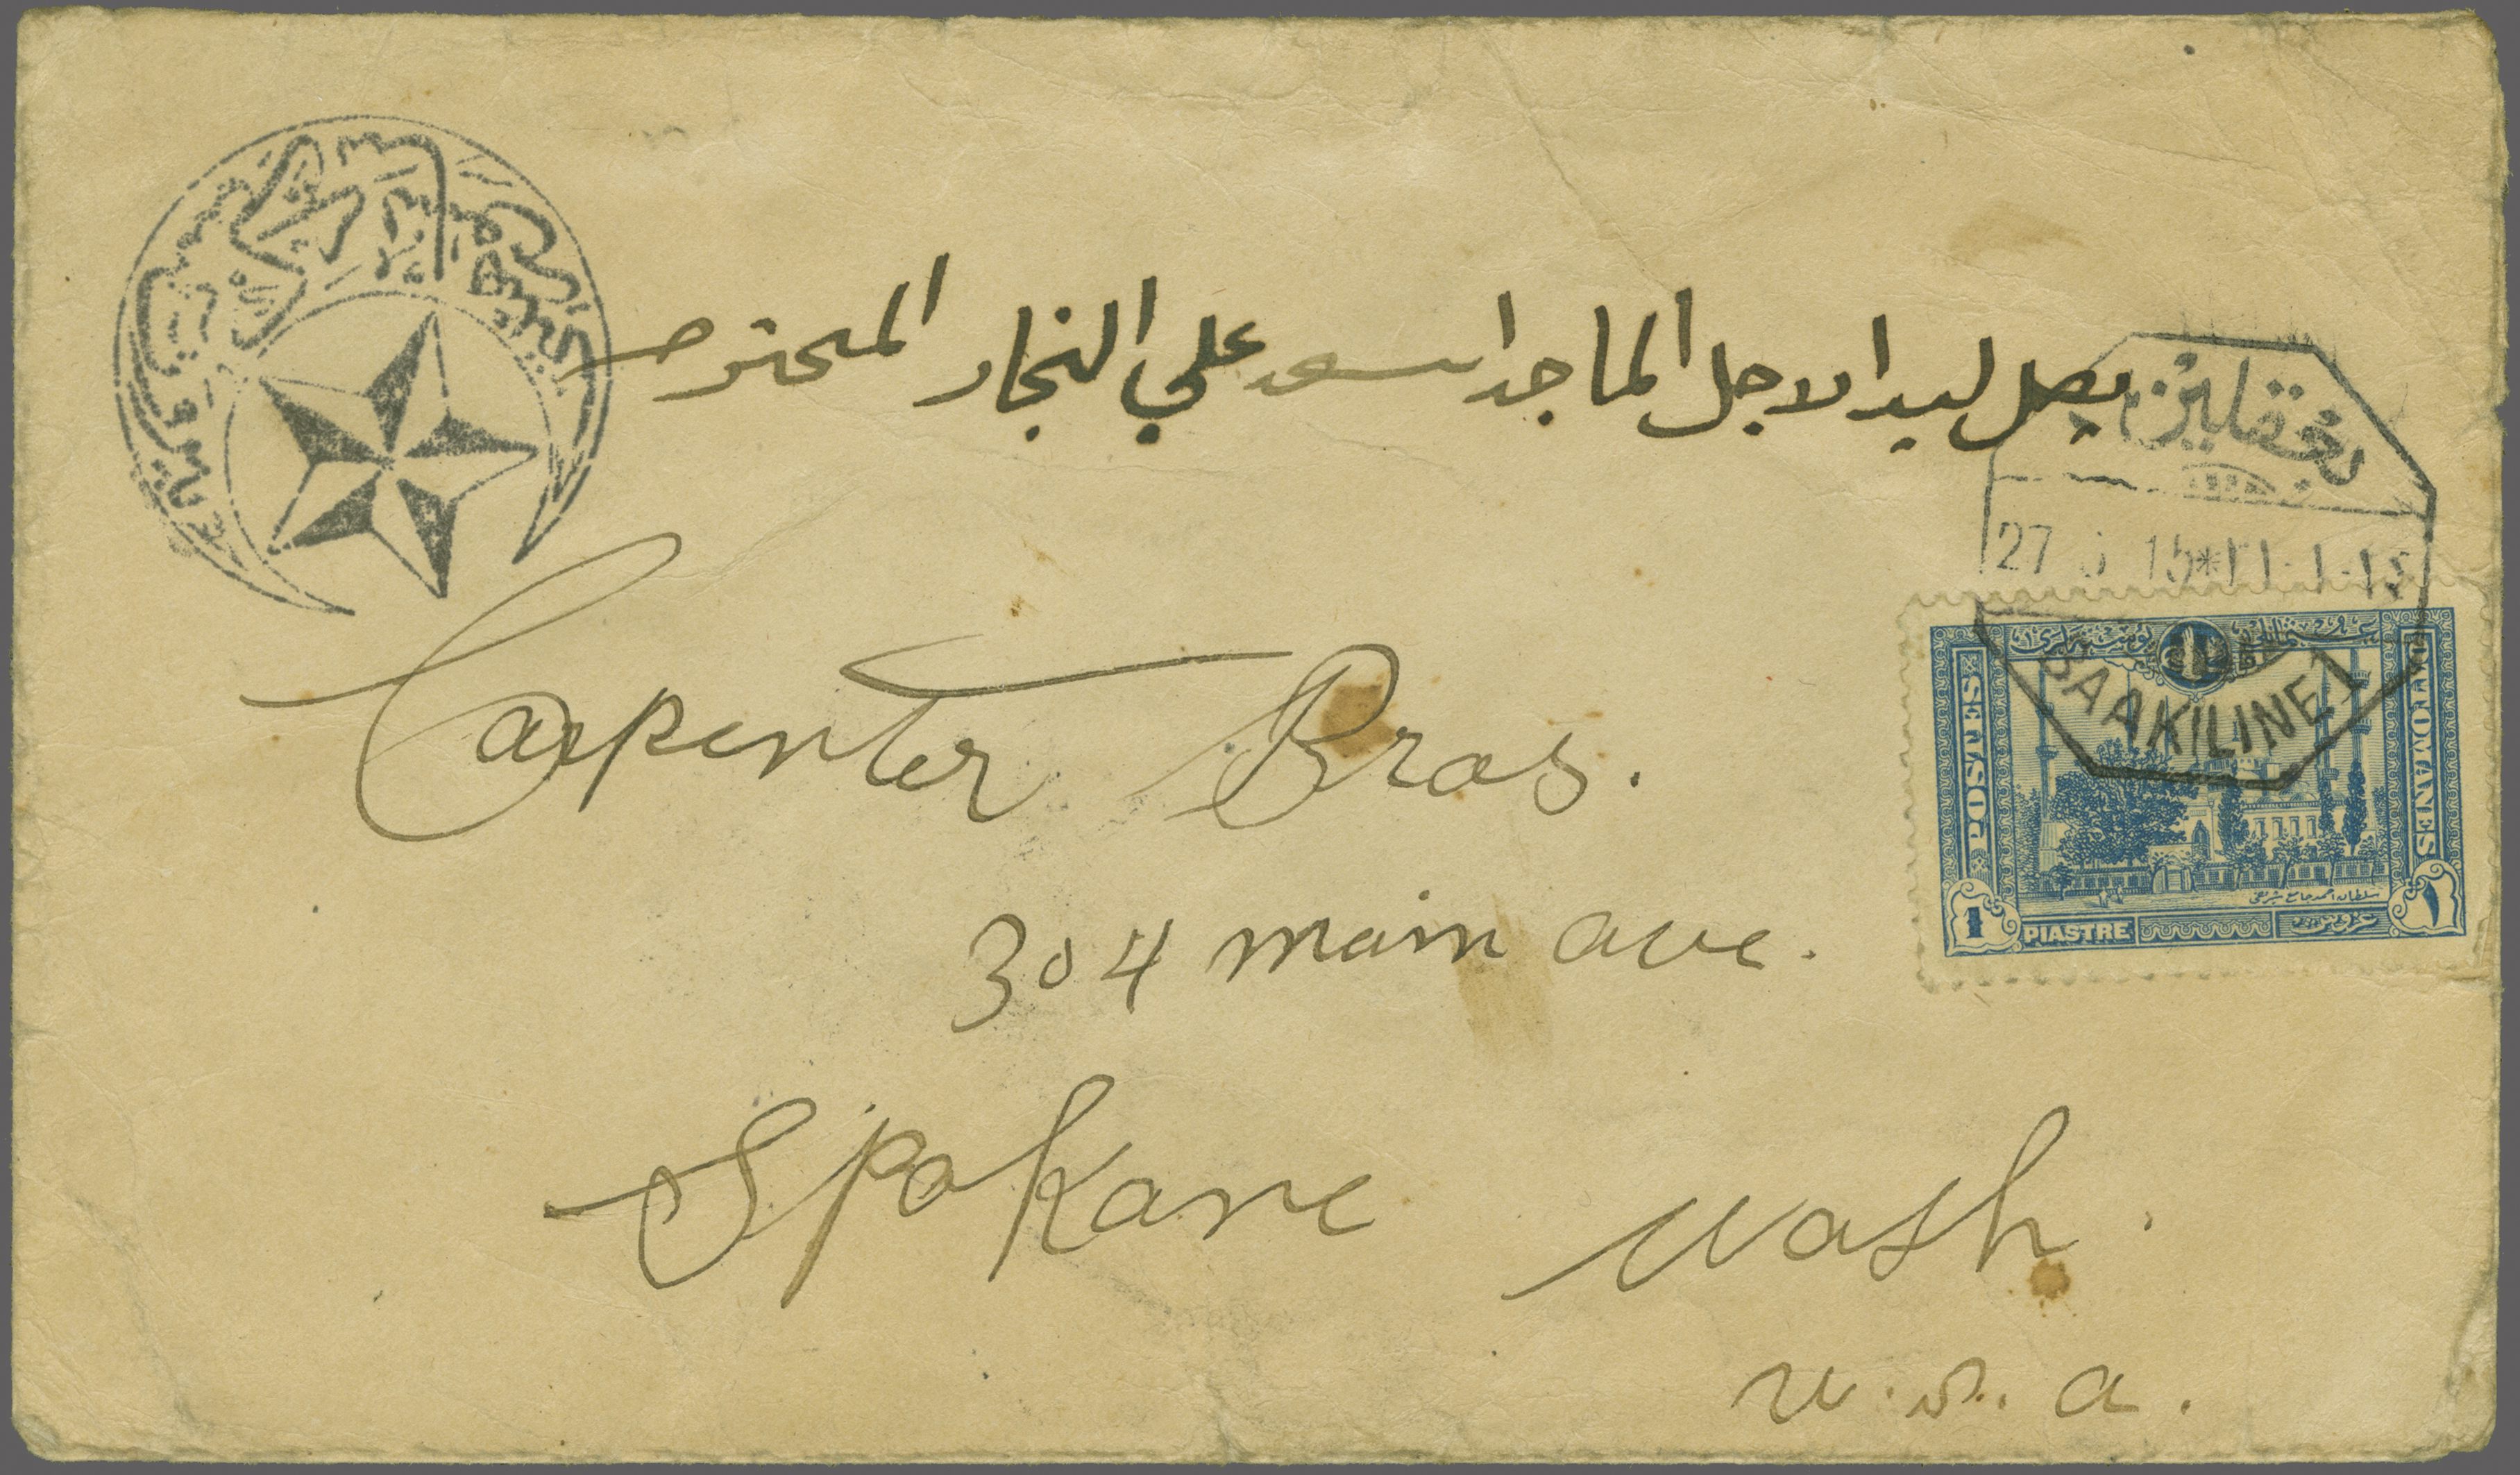 يصل ليد الاجل الماجد اسعد علي النجار المحترم
بعقلين
27 15*
BAAKILINE 1
POSTES OTTOMANES
1 PIASTRE ١
Carpenter Bros.
304 main ave.
Spokane Wash.
U.S.A.